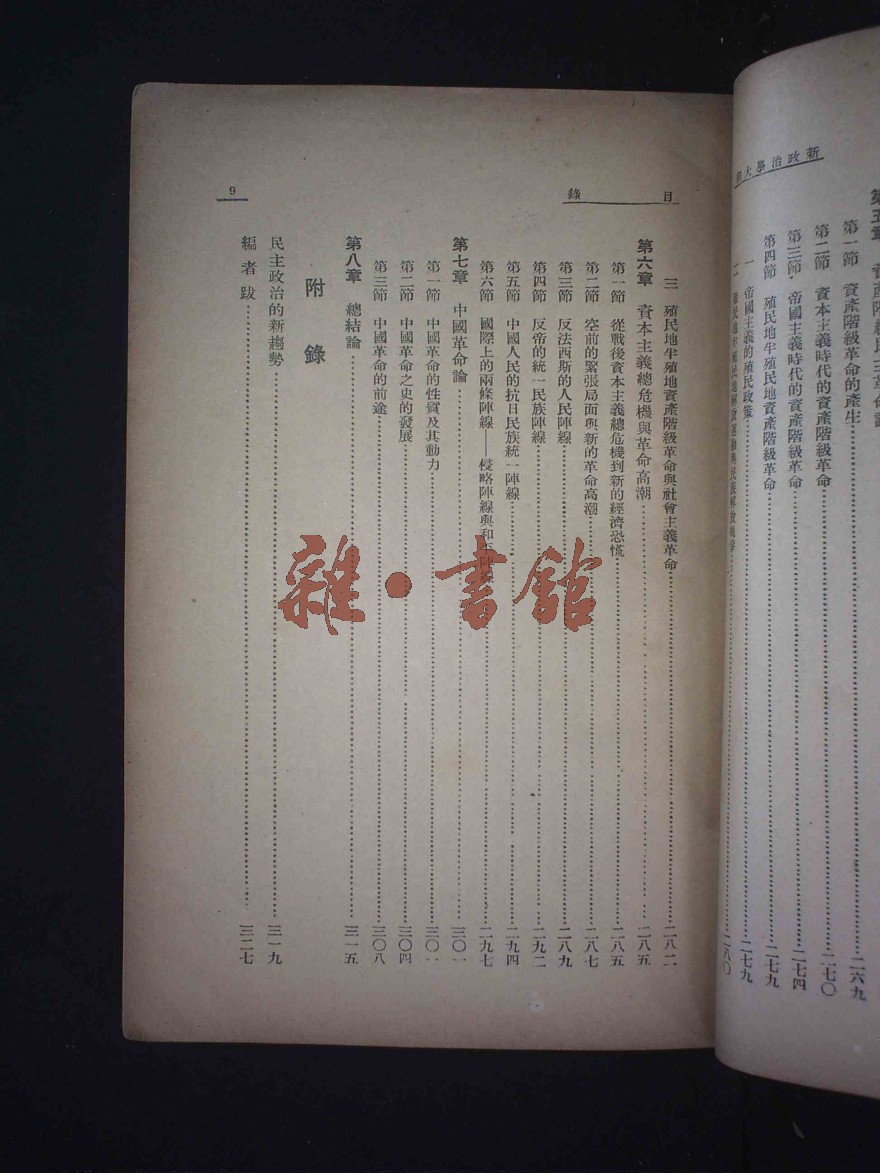 新政治學大
第一節 資產階級革命的產生……二六九
第二節 資本主義時代的資產階級革命……二七〇
第三節 帝國主義時代的資產階級革命……二七四
第四節 殖民地半殖民地資產階級革命……二七九
一 帝國主義的殖民政策……二七九
二 殖民地半殖民地解放運動與民族解放戰爭……二八〇
目 錄
9
三 殖民地半殖地資產階級革命與社會主義革命……二八二
第六章 資本主義總危機與革命高潮……二八五
第一節 從戰後資本主義總危機到新的經濟恐慌……二八五
第二節 空前的緊張局面與新的革命高潮……二八七
第三節 反法西斯的人民陣線……二八九
第四節 反帝的統一民族陣線……二九二
第五節 中國人民的抗日民族統一陣線……二九四
第六節 國際上的兩條陣線——侵略陣線與和平陣線……二九七
第七章 中國革命論……三〇一
第一節 中國革命的性質及其動力……三〇一
第二節 中國革命之史的發展……三〇四
第三節 中國革命的前途……三〇八
第八章 總結論……三一五
附 錄
民主政治的新趨勢……三一九
編者跋……三二七
雜·書館